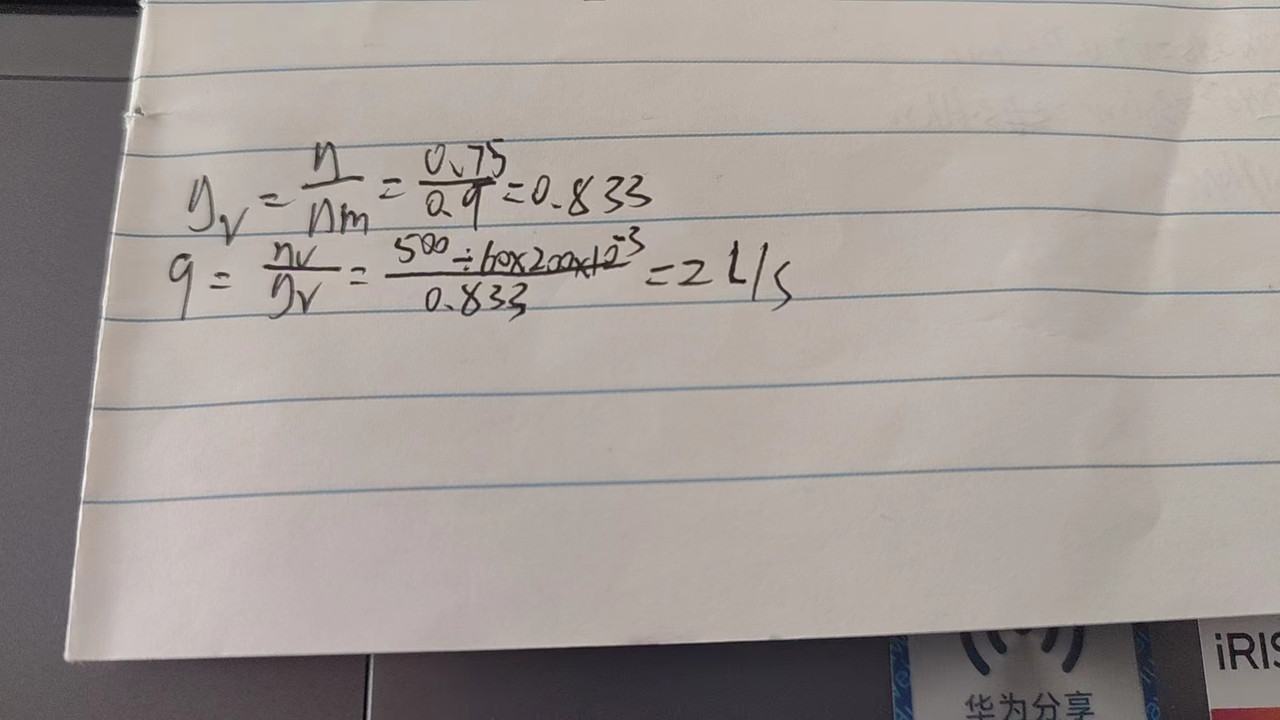 η_v = η/ηm = 0.75/0.9 = 0.833
q = nv/η_v = 500÷60×200×10⁻³/0.833 = 2 L/s
iRIS
华为分享